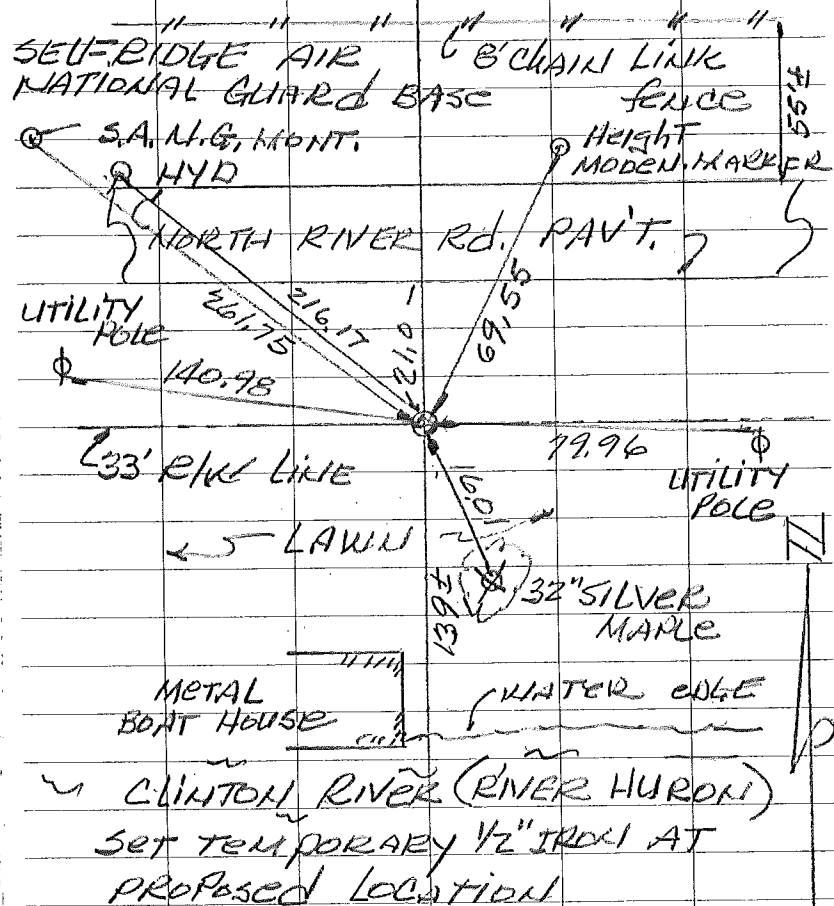 SELFRIDGE AIR
NATIONAL GUARD BASE
8' CHAIN LINK
fence
55'±
S.A.N.G. MONT.
HYD
Height
MODEN. MARKER
NORTH RIVER Rd. PAV'T.
UTILITY
POLE
261.75
216.17
21.0
69.55
140.98
79.96
33' R/W LINE
UTILITY
POLE
19.01
LAWN
139±
32" SILVER
MAPLE
N
METAL
BOAT HOUSE
WATER EDGE
CLINTON RIVER (RIVER HURON)
SET TEMPORARY 1/2" IRON AT
PROPOSED LOCATION